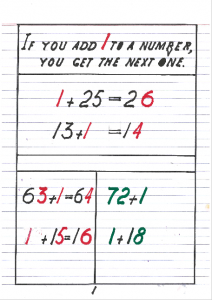 IF YOU ADD 1 TO A NUMBER,
YOU GET THE NEXT ONE.
1+25=26
13+1=14
63+1=64
72+1
1+15=16
1+18
1